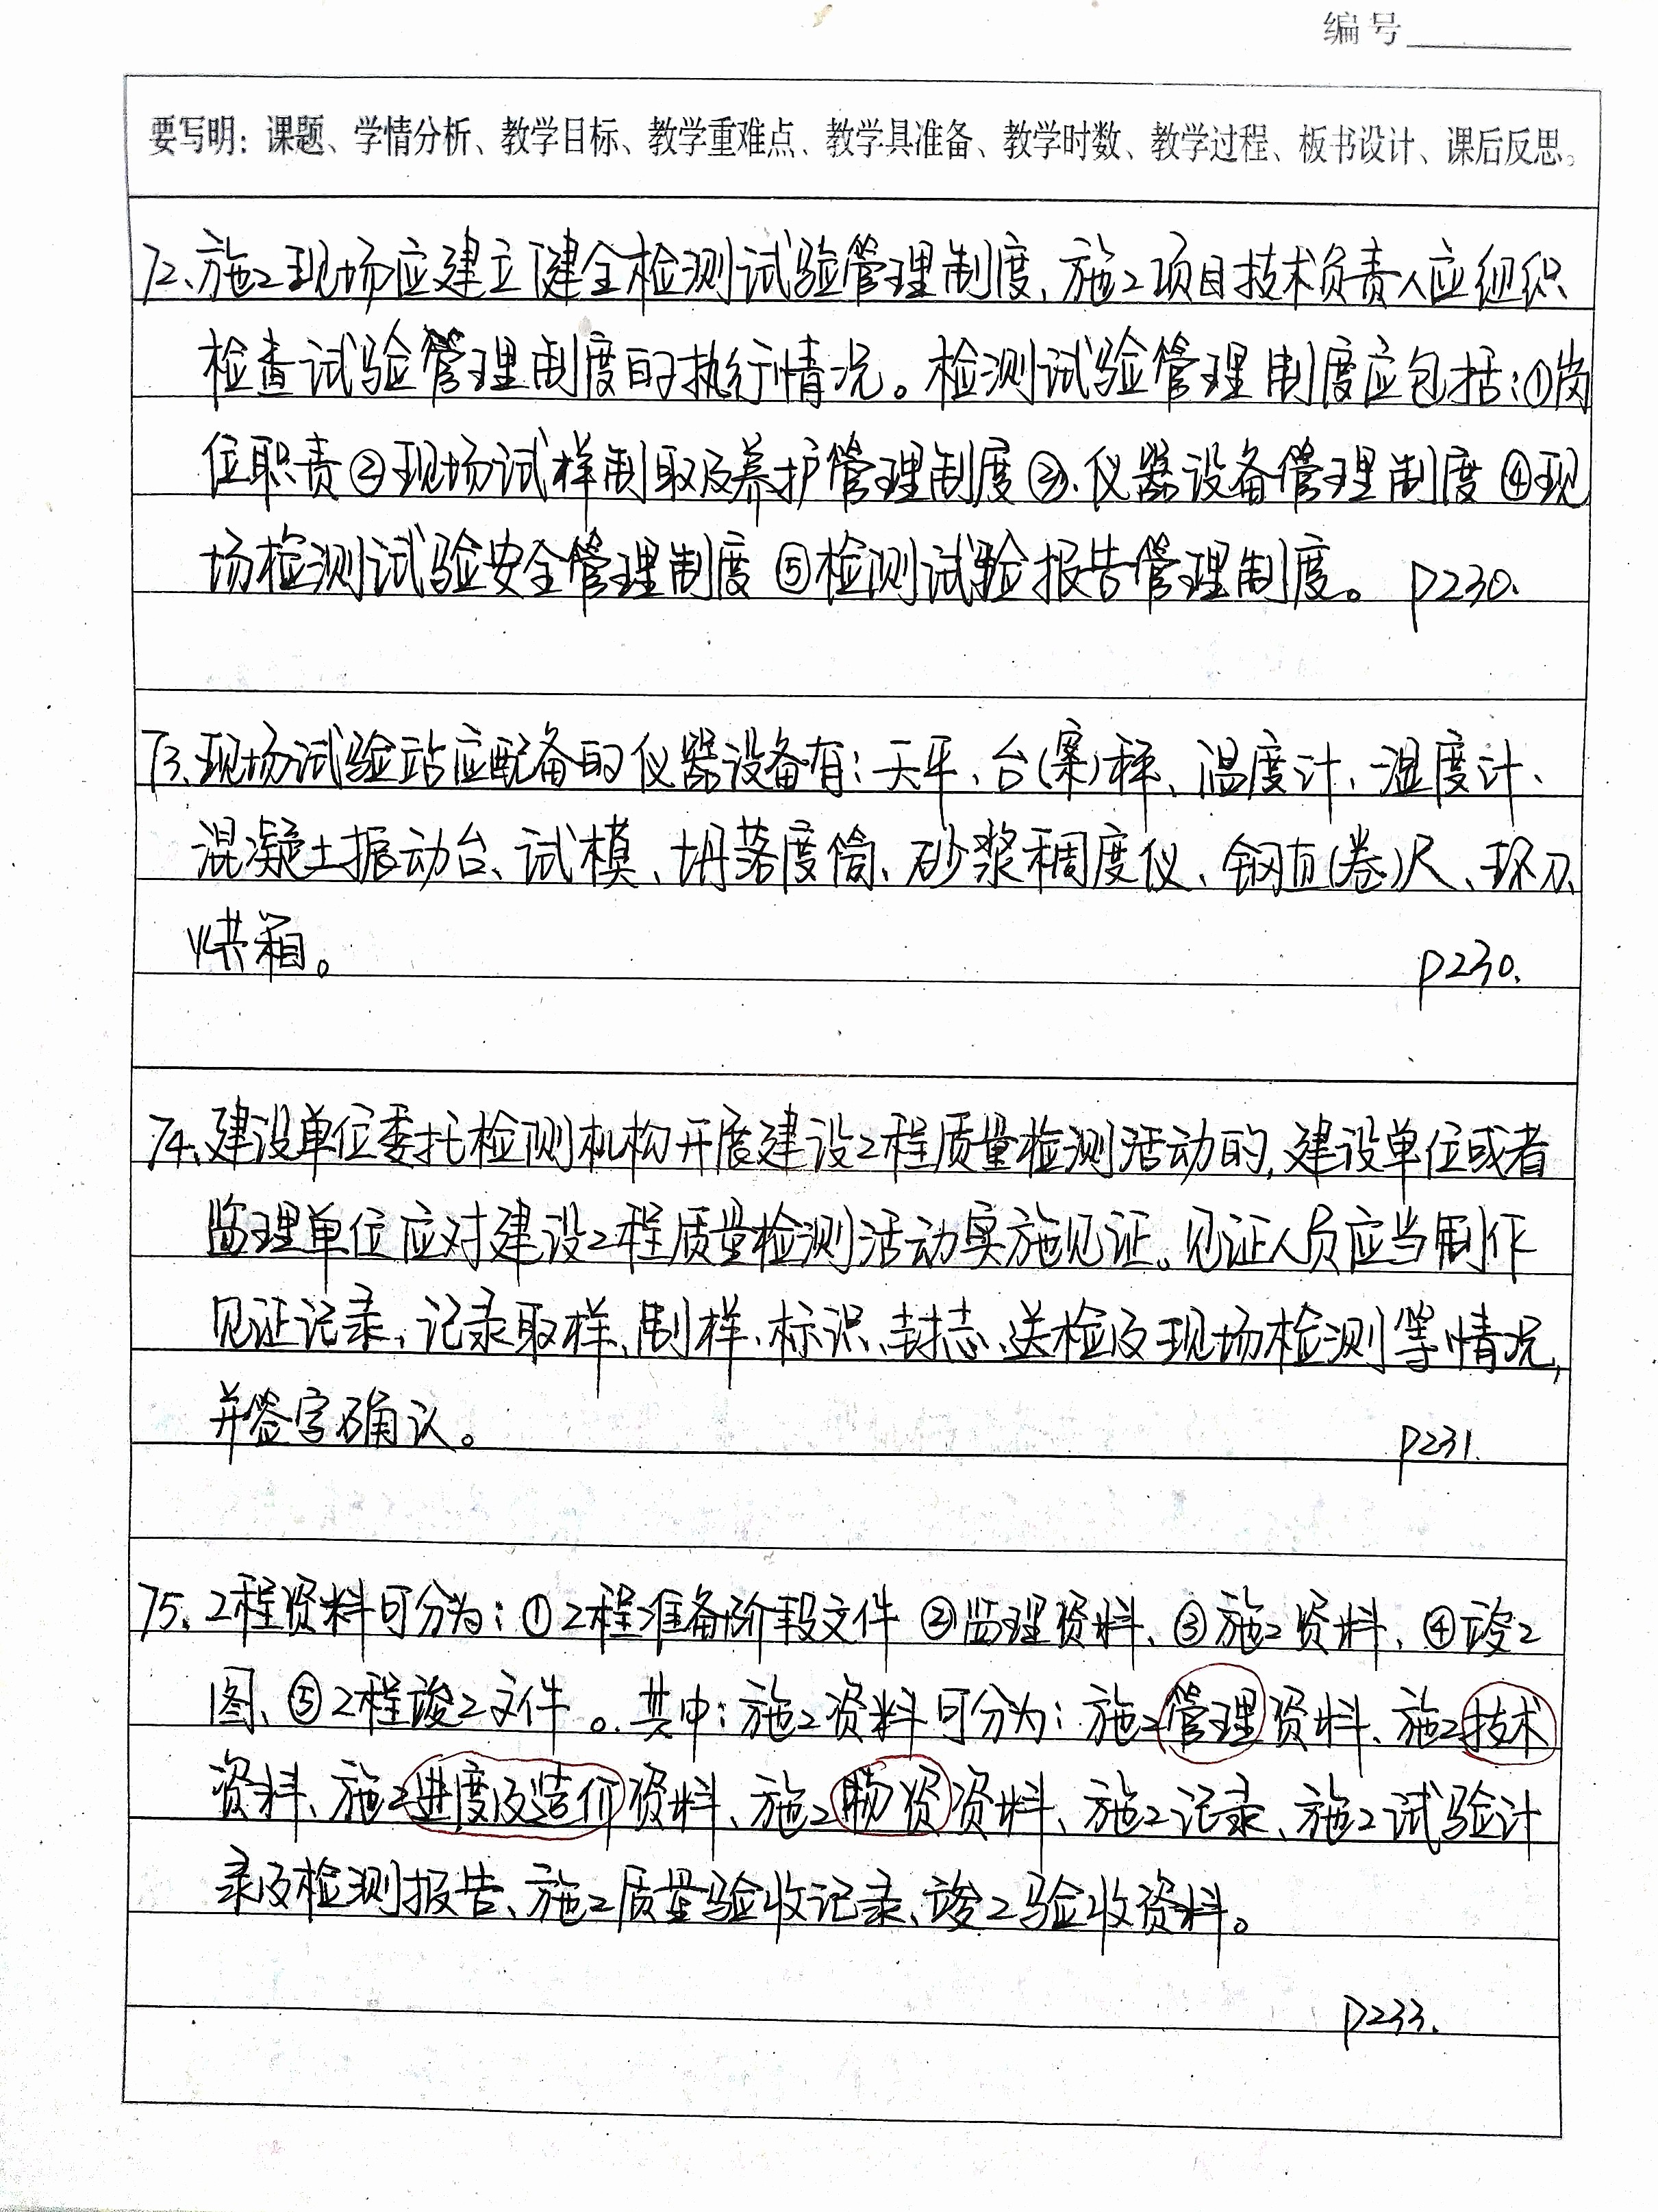 编号
要写明：课题、学情分析、教学目标、教学重难点、教学具准备、教学时数、教学过程、板书设计、课后反思。
72、施工现场应建立健全检测试验管理制度，施工项目技术负责人应组织
检查试验管理制度的执行情况。检测试验管理制度应包括：①岗
位职责②现场试样制取及养护管理制度③、仪器设备管理制度④现
场检测试验安全管理制度⑤检测试验报告管理制度。 P230.
73、现场试验站应配备的仪器设备有：天平、台(案)秤、温度计、湿度计、
混凝土振动台、试模、坍落度筒、砂浆稠度仪、钢直(卷)尺、环刀、
烘箱。 P230.
74、建设单位委托检测机构开展建设工程质量检测活动的，建设单位或者
监理单位应对建设工程质量检测活动实施见证。见证人员应当制作
见证记录，记录取样、制样、标识、封志、送检及现场检测等情况，
并签字确认。 P231.
75、工程资料可分为：①工程准备阶段文件②监理资料、③施工资料、④竣工
图、⑤工程竣工文件。其中：施工资料可分为：施工管理资料、施工技术
资料、施工进度及造价资料、施工物资资料、施工记录、施工试验计
录及检测报告、施工质量验收记录、竣工验收资料。
P233.